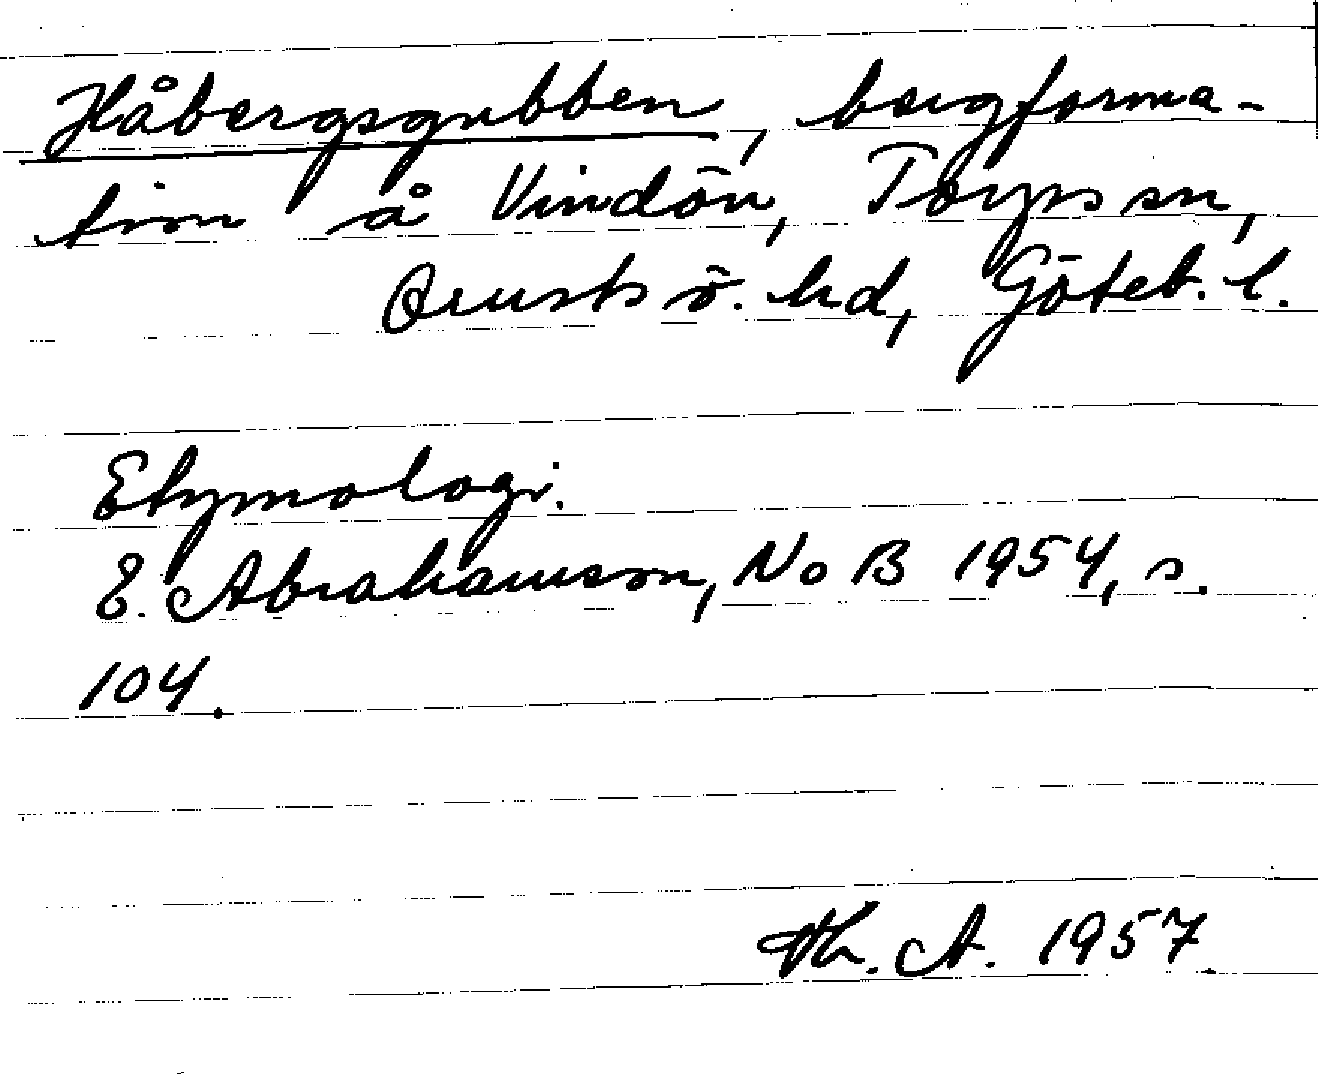 Håbergsgubben, bergforma-
tion å Vindön, Torps sn,
Orusts ö. hd, Göteb. l.
Etymologi.
E. Abrahamson, NoB 1954, s.
104.
Th. A. 1957.